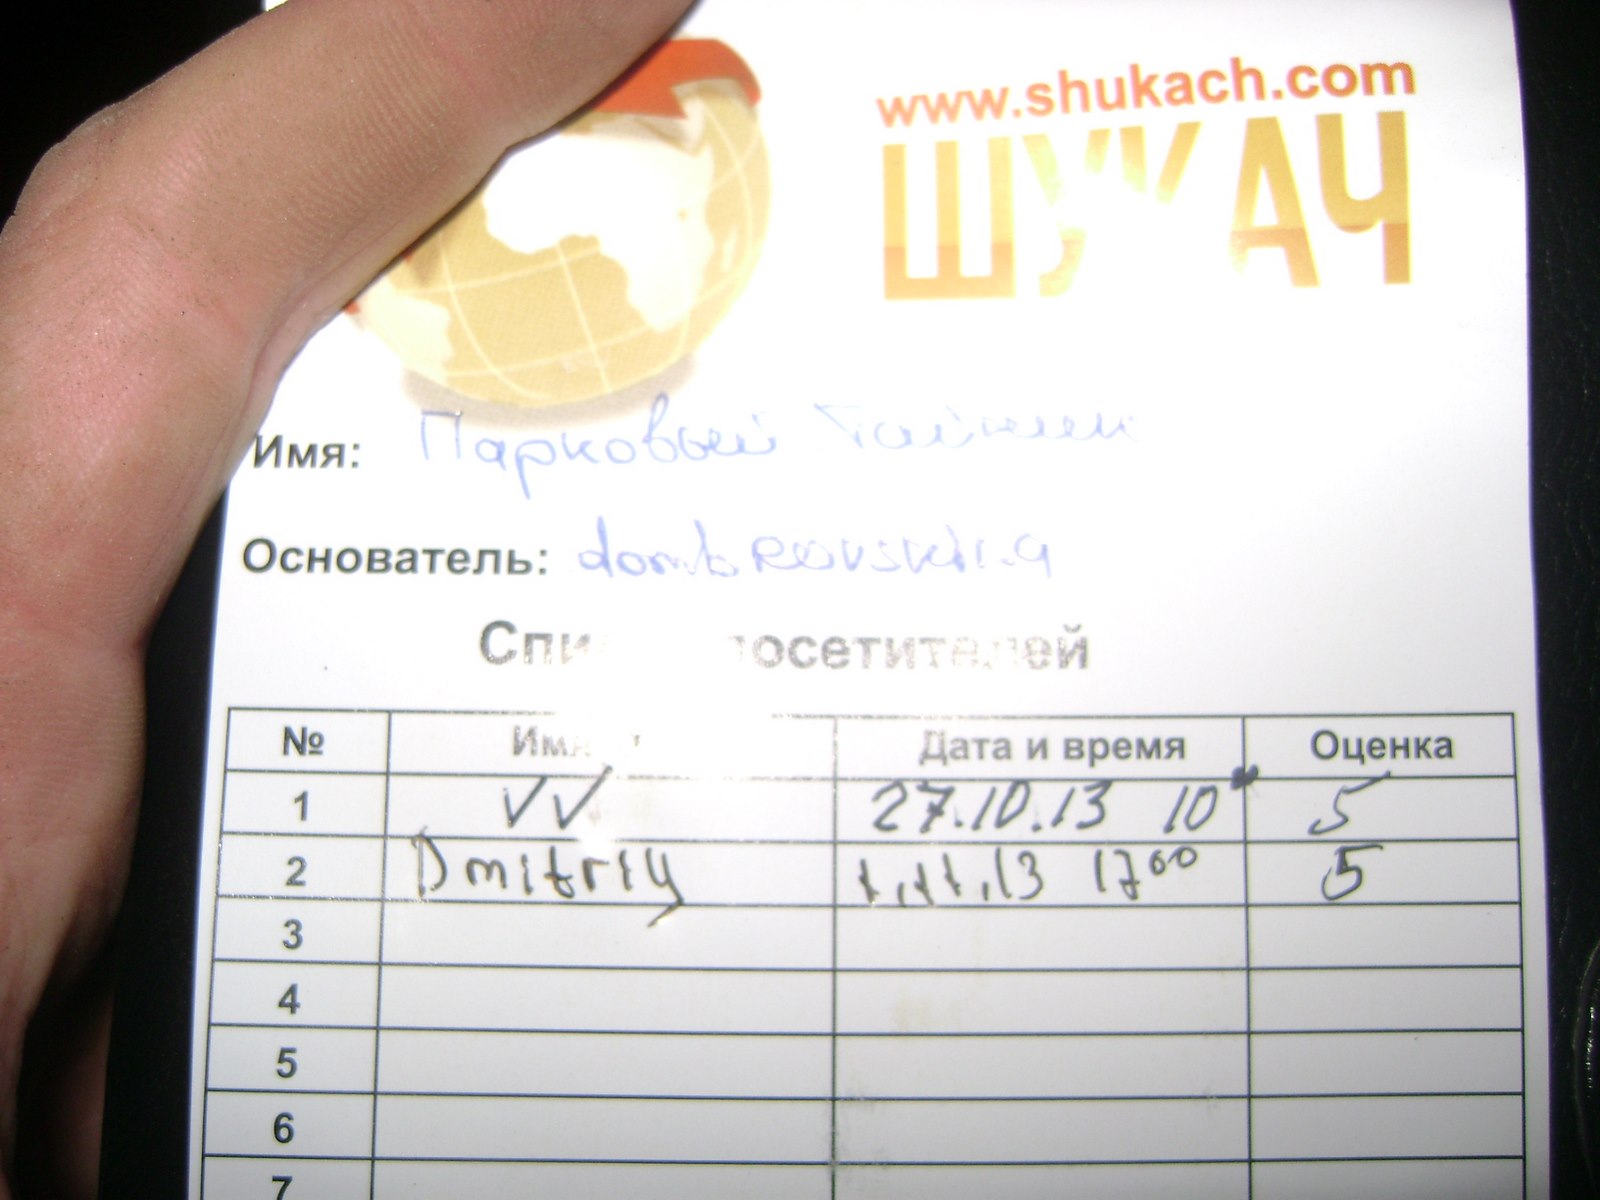 www.shukach.com
ШУКАЧ
Имя: Парковый Тайник
Основатель:
Список посетителей
№ Имя Дата и время Оценка
1 VV 27.10.13 10 5
2 Dmitriy 1.11.13 17⁰⁰ 5
3
4
5
6
7